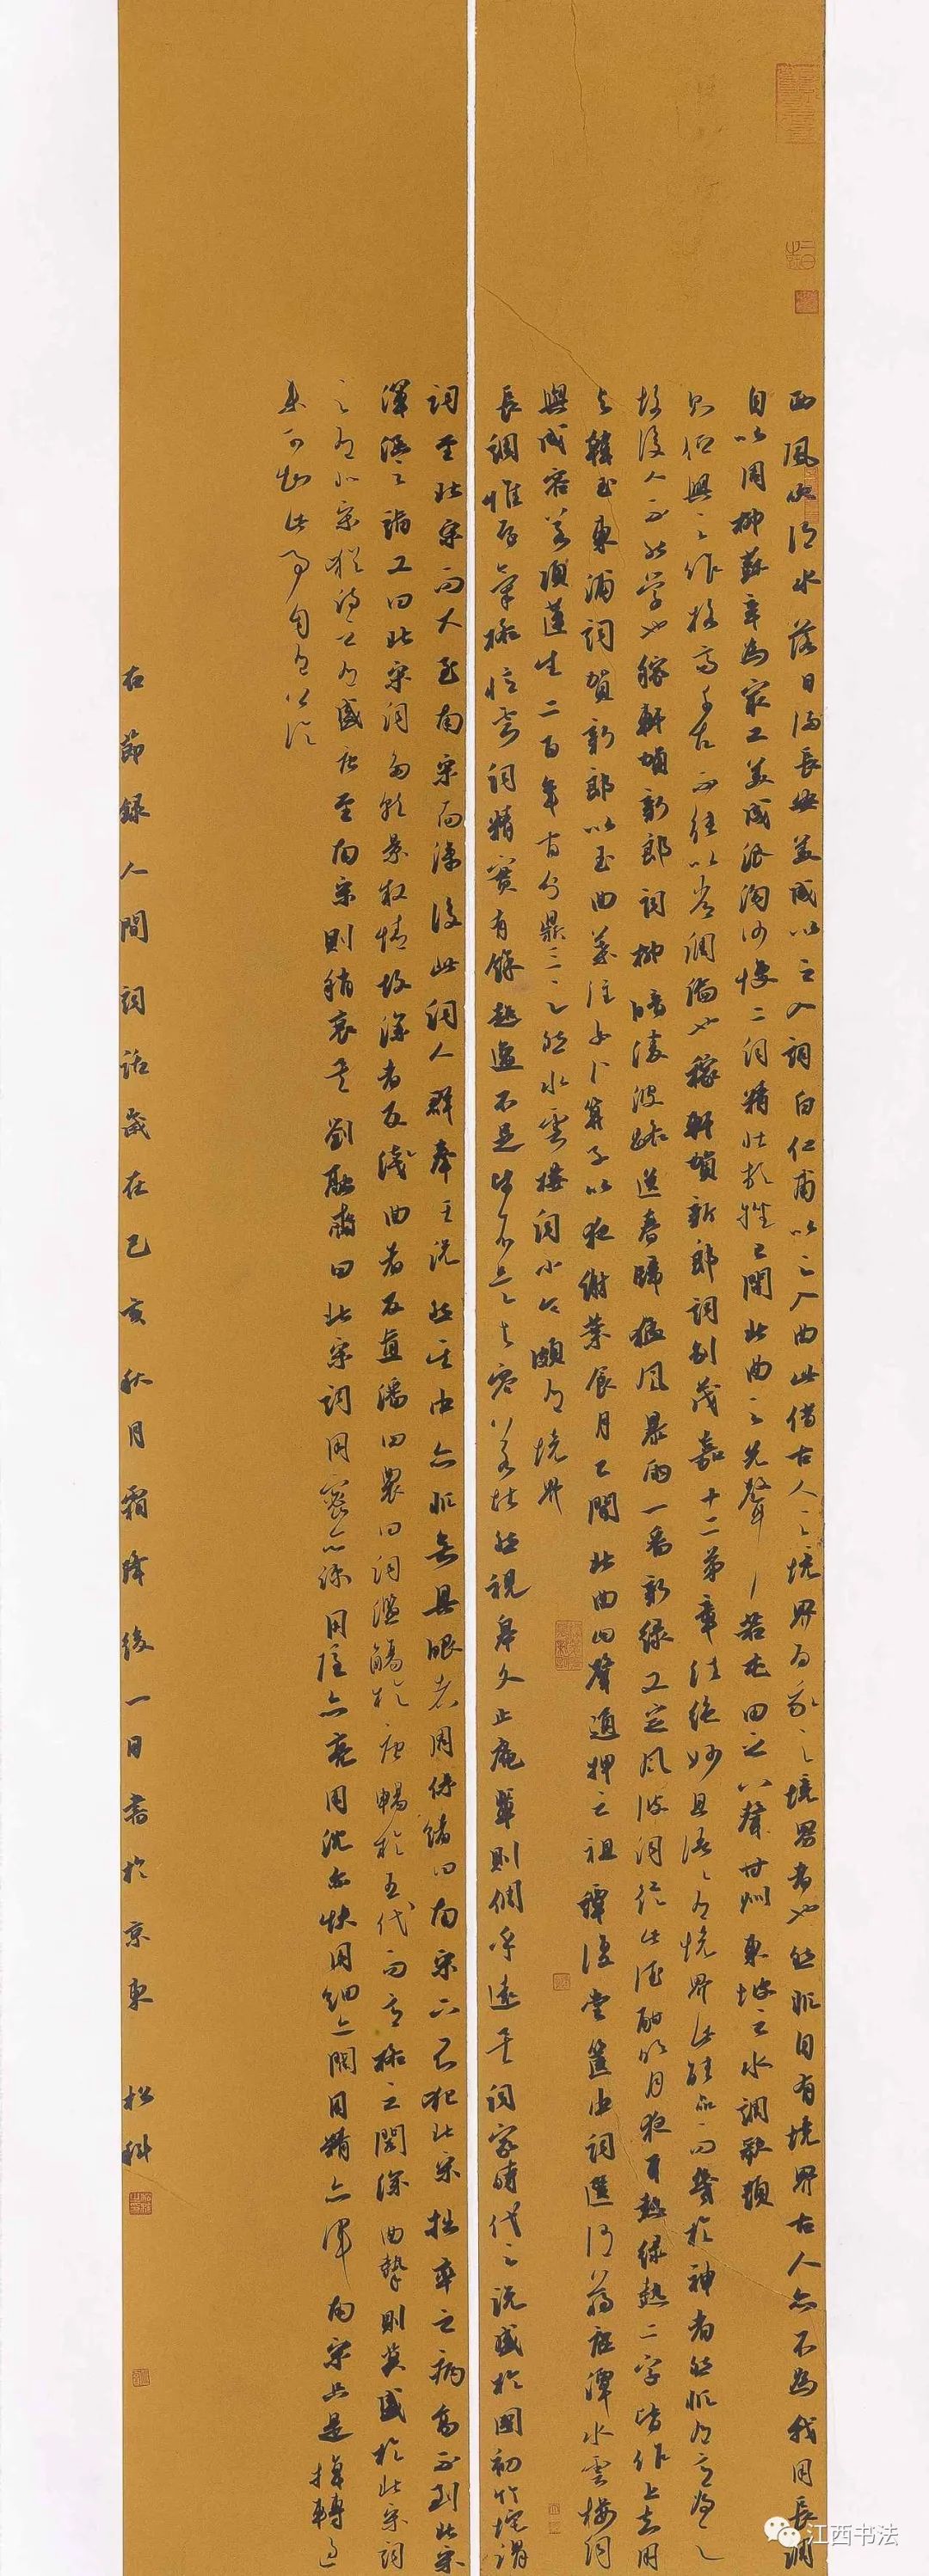 西風吹渭水落日滿長安美成以之入詞白仁甫以之入曲此借古人之境界為我之境界者也然非自有境界古人亦不為我用長調
自以周柳蘇辛為最工美成浪淘沙慢二詞精壯頓挫已開北曲之先聲若屯田之八聲甘州東坡之水調歌頭
則佇興之作格高千古不能以常調論也稼軒賀新郎詞別茂嘉十二弟章法絕妙且語語有境界此能品而幾於神者然非有意為之
故後人不能學也稼軒賀新郎詞柳暗凌波路送春歸猛風暴雨一番新綠又定風波詞從此酒酣明月夜耳熱綠熱二字皆作上去用
與韓玉東浦詞賀新郎以玉曲葉注女卜算子以夜謝葉食月已開北曲四聲通押之祖譚復堂篋中詞選謂蔣鹿潭水雲樓詞
與成容若項蓮生二百年間分鼎三足然水雲樓詞小令頗有境界
長調惟存氣格憶雲詞精實有餘超逸不足皆不足與容若比然視皋文止庵輩則倜乎遠矣詞家時代之說盛於國初竹垞謂
詞至北宋而大至南宋而深後此詞人群奉其說然其中亦非無具眼者周保緒曰南宋下不犯北宋拙率之病高不到北宋
渾涵之詣又曰北宋詞多就景敘情故深者反淺曲者反直潘四農曰詞濫觴於唐暢於五代而意格之閎深曲摯則莫盛於北宋詞
之有北宋猶詩之有盛唐至南宋則稍衰矣劉融齋曰北宋詞用密亦疏用隱亦亮用沈亦快用細亦闊用精亦渾南宋只是掉轉過
來可知此事自有公論
右節錄人間詞話歲在己亥秋月霜降後一日書於京東 松科
江西书法